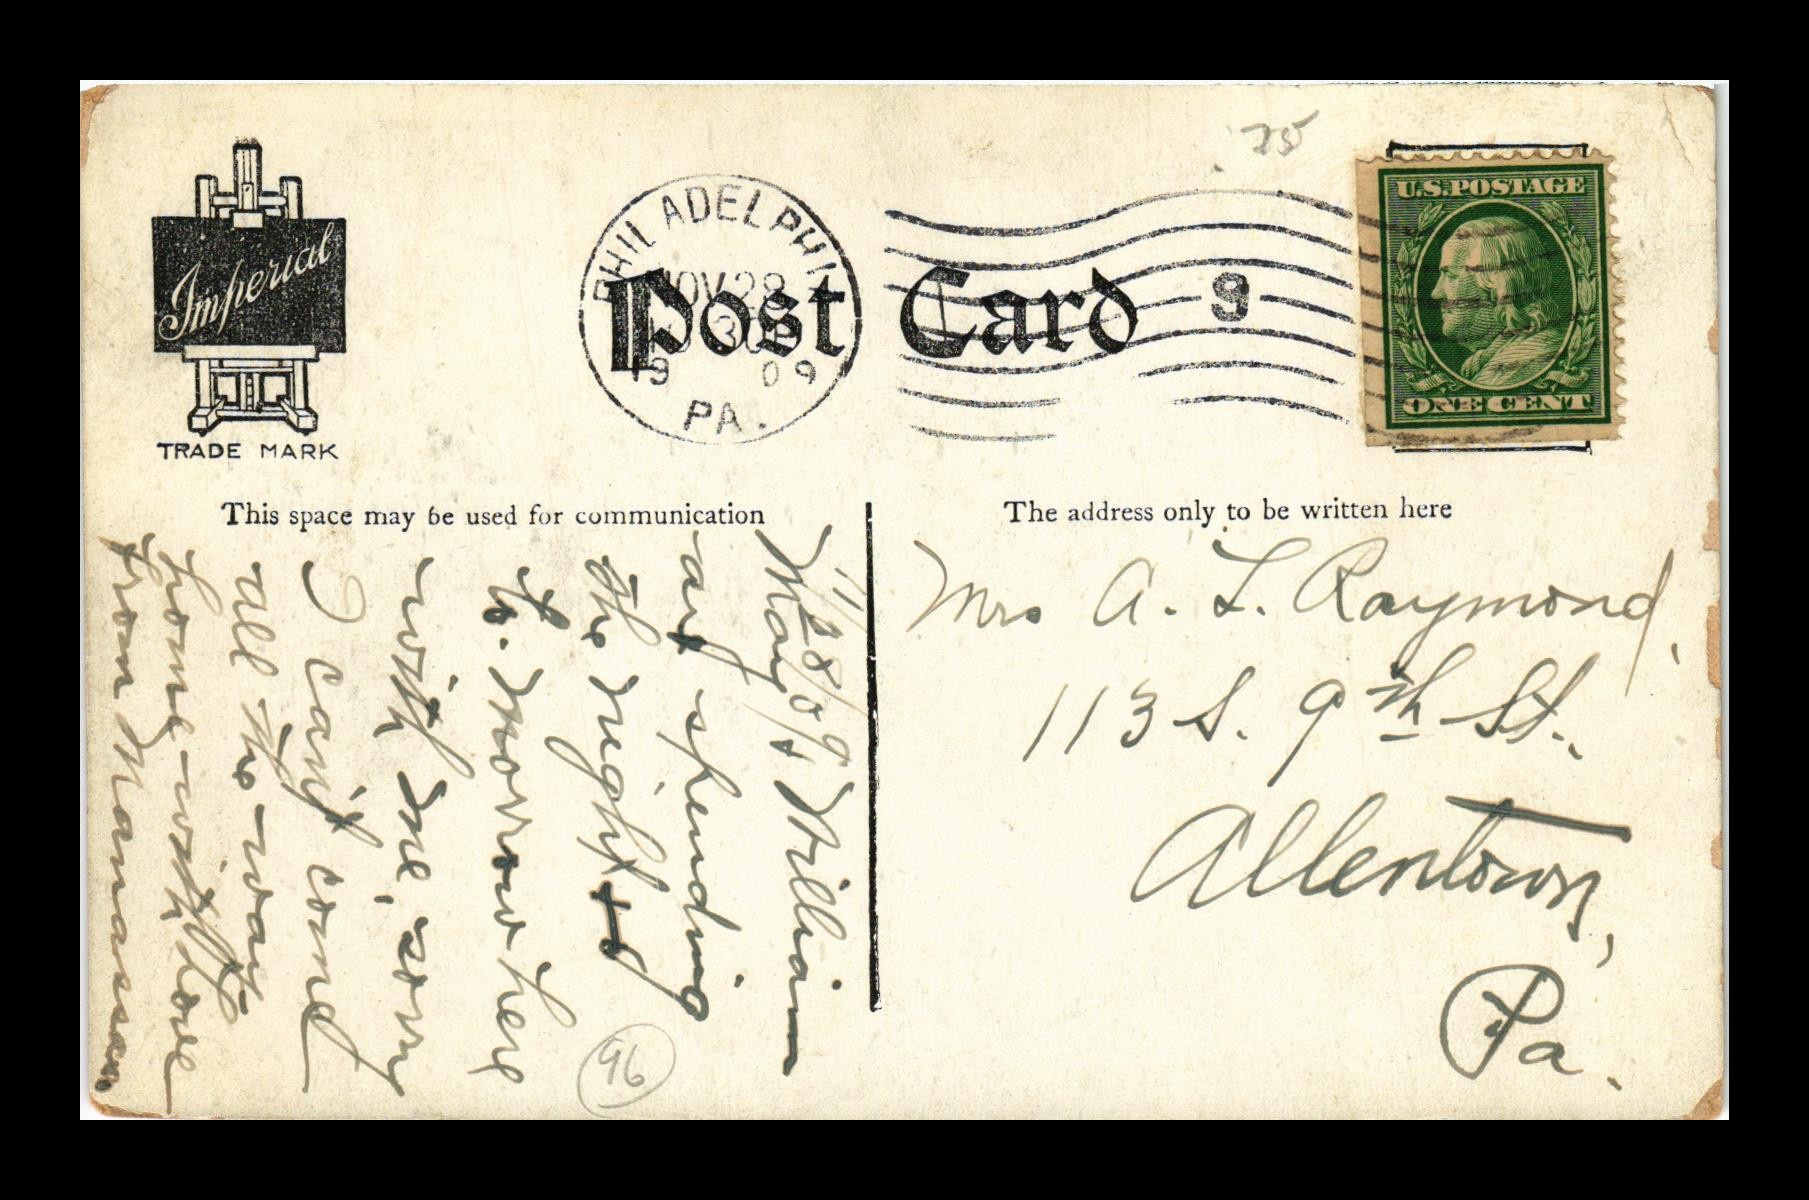 25
Imperial
TRADE MARK
PHILADELPHIA
NOV 28
30
1909
PA.
9
U.S. POSTAGE
ONE CENT
Post Card
This space may be used for communication
The address only to be written here
11/28/09
May & William
are spending
the night &
to-morrow here
with me, sorry
I can't come
all the way
home - with love
from
Mrs A. L. Raymond,
113 S. 9th St.,
Allentown,
Pa.
96